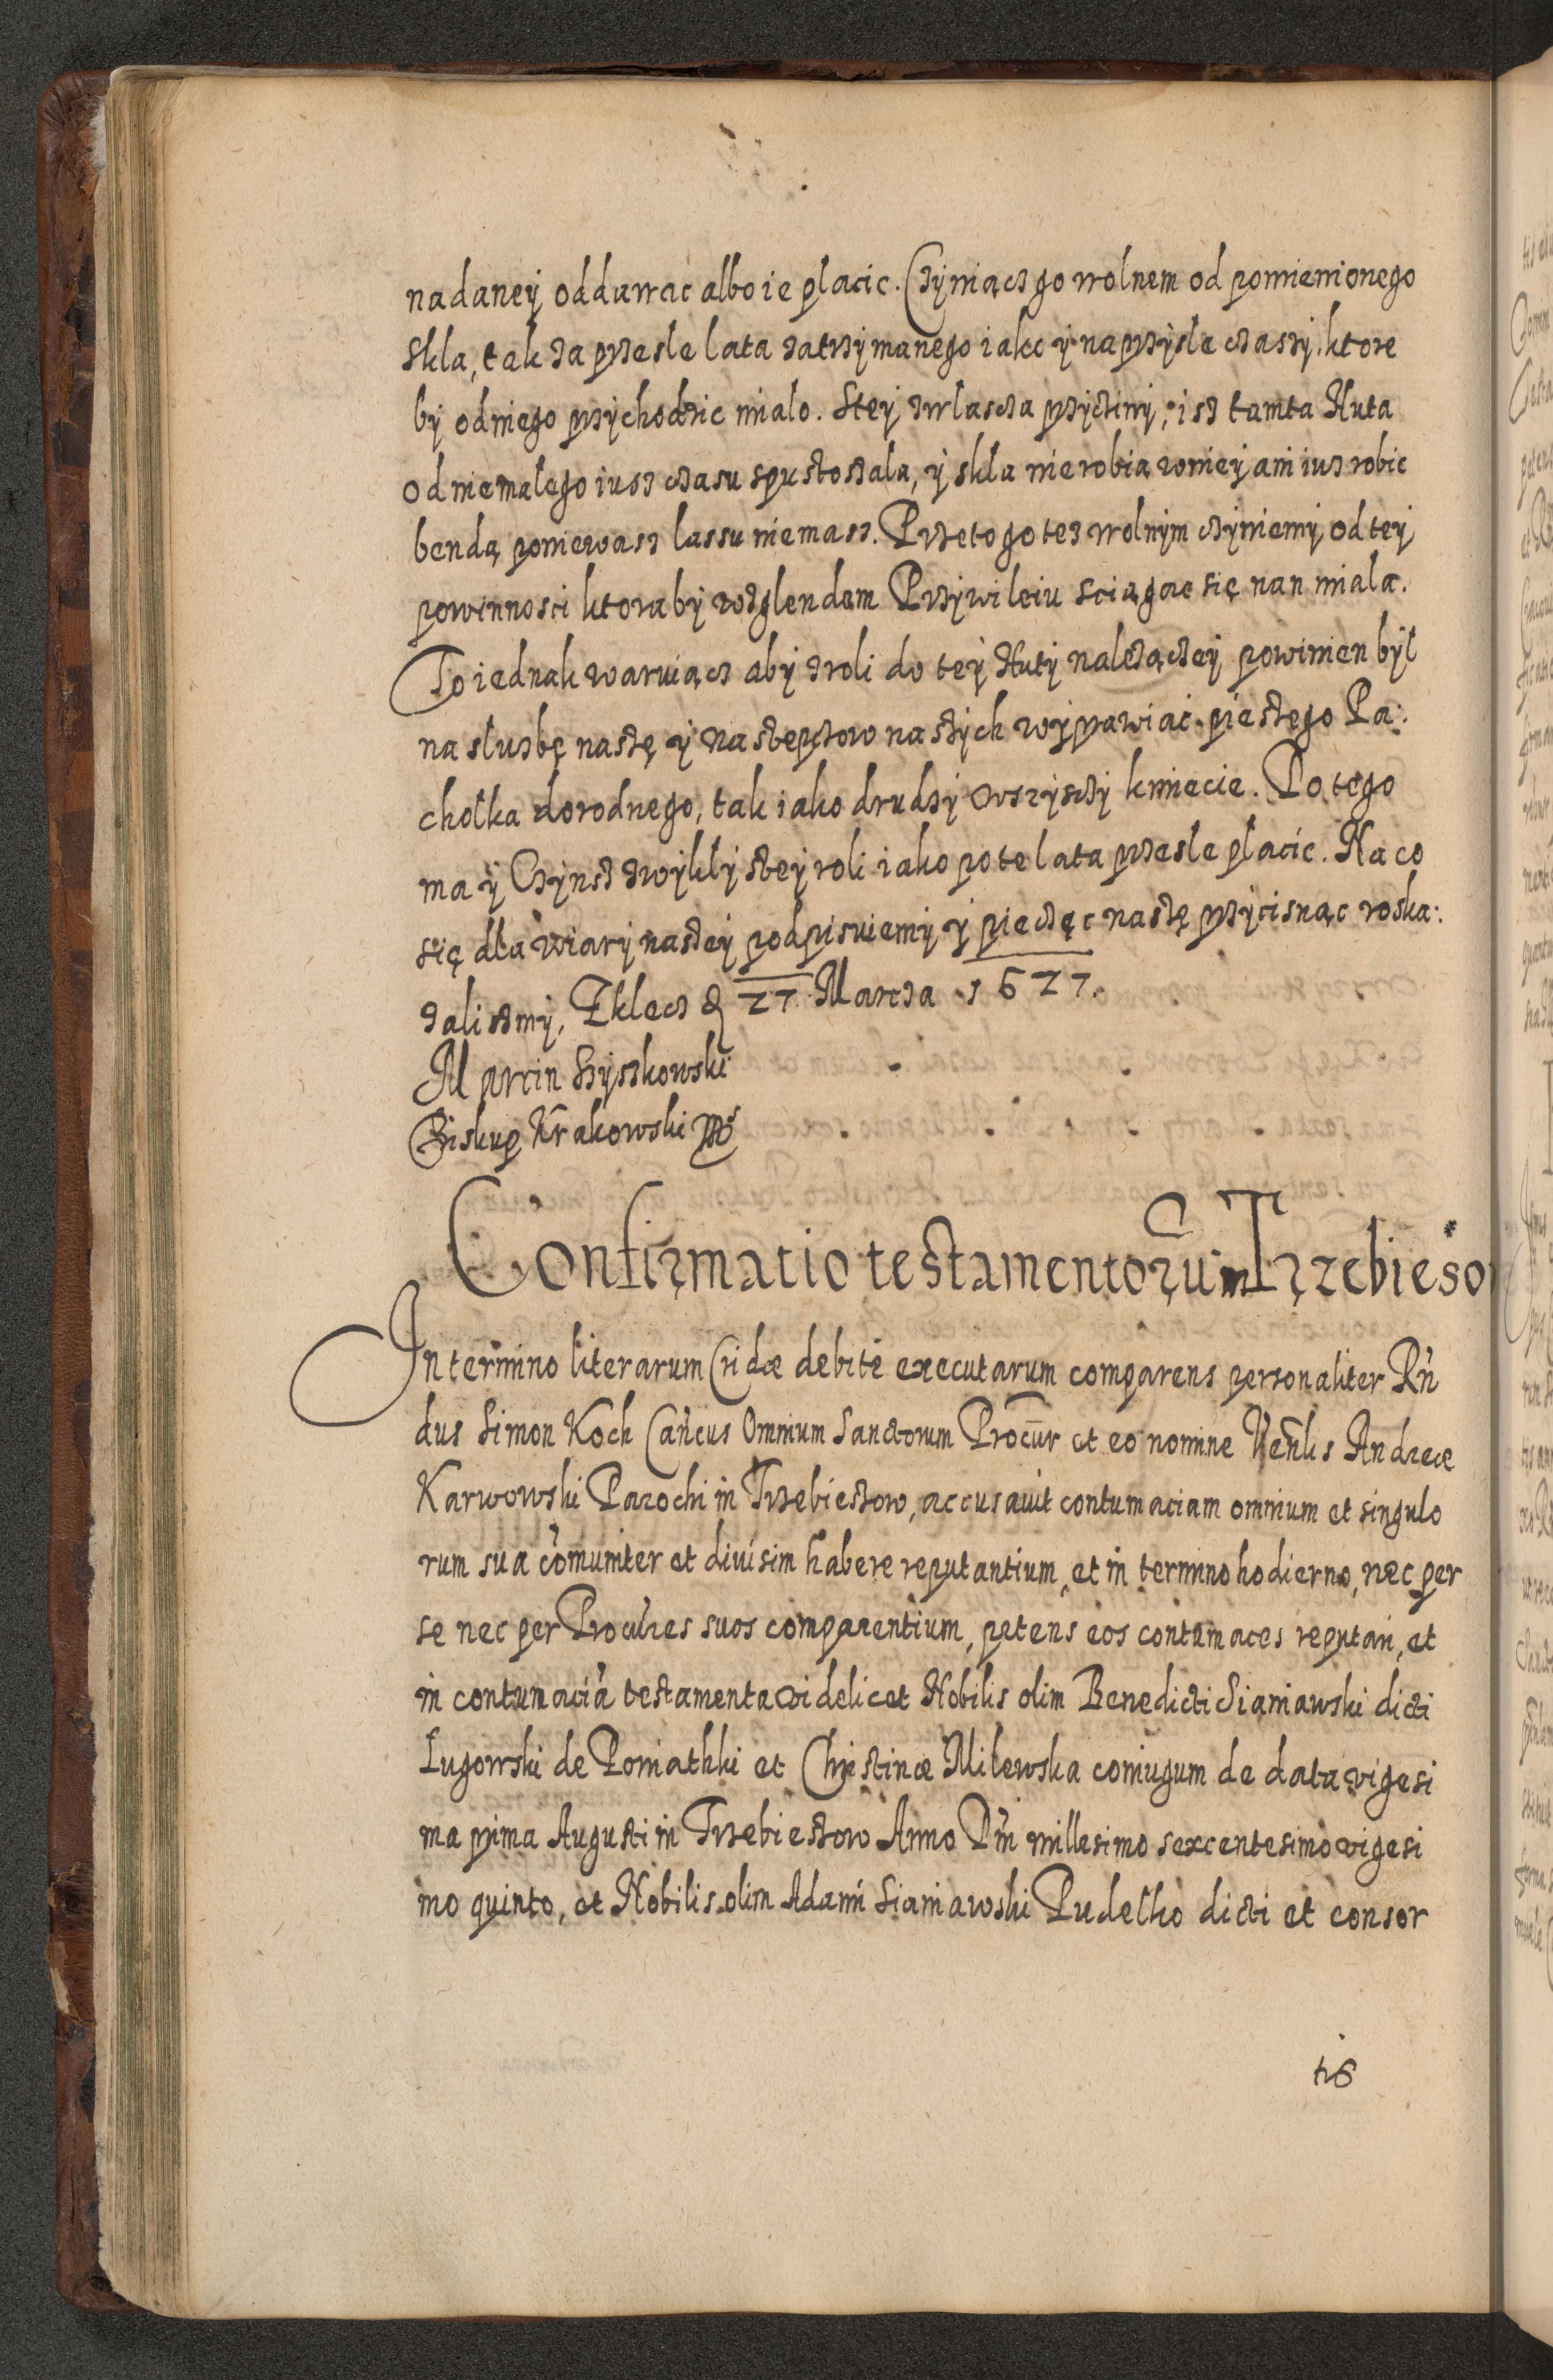 nadaney oddawac albo ie placic. Czyniącz go wolnem od pomienionego
skla, tak za przesle lata zatrzymanego iako y na przysle czassy, ktore
by od niego przychodzic mialo. Stey zwlascza przyczyny, isz tamta Huta
od niemalego iusz czasu spustoszala, y skla nie robią w niey ani iuz robic
bendą poniewasz lassu niemasz. Przeto go tez wolnym czyniemy od tey
powinnosci ktoraby wzglendem Przywileiu sciągac się nan miala.
To iednak waruiącz aby z roli do tey Huty nalezączey powinien był
na sluzbę naszę y nastepczow naszych wyprawiac pieszego Pa:
cholka dorodnego, tak iako drudzy wszyszczy kmiecie. Do tego
ma y Czynsz zwykly s tey roli iako po te lata przesle placic. Na co
się dla wiary naszey podpisuiemy y pieczęc naszę przycisnąc roska:
zalismy, Z Klecz d 27 Marcza 1627.
Marcin Szyszkowski
Biskup Krakowski
Confirmatio testamentorum Trzebieso
In termino literarum Cridæ debite executarum comparens personaliter Rñ
dus Simon Koch Cañcus Omnium Sanctorum Procur et eo nomine Veñlis Andreæ
Karwowski Parochi in Trzebieszow, accusavit contumaciam omnium et singulo
rum sua comuniter et divisim habere reputantium, et in termino hodierno, nec per
se nec per Procures suos comparentium, petens eos contumaces reputari, et
in contumacia testamenta videlicet Nobilis olim Benedicti Sianiawski dicti
Lugowski de Poniathki et Christinæ Milewska coniugum de data vigesi
ma prima Augusti in Trzebieszow Anno Dni millesimo sexcentesimo vigesi
mo quinto, et Nobilis olim Adami Sianiawski Pudelko dicti et consor
tis